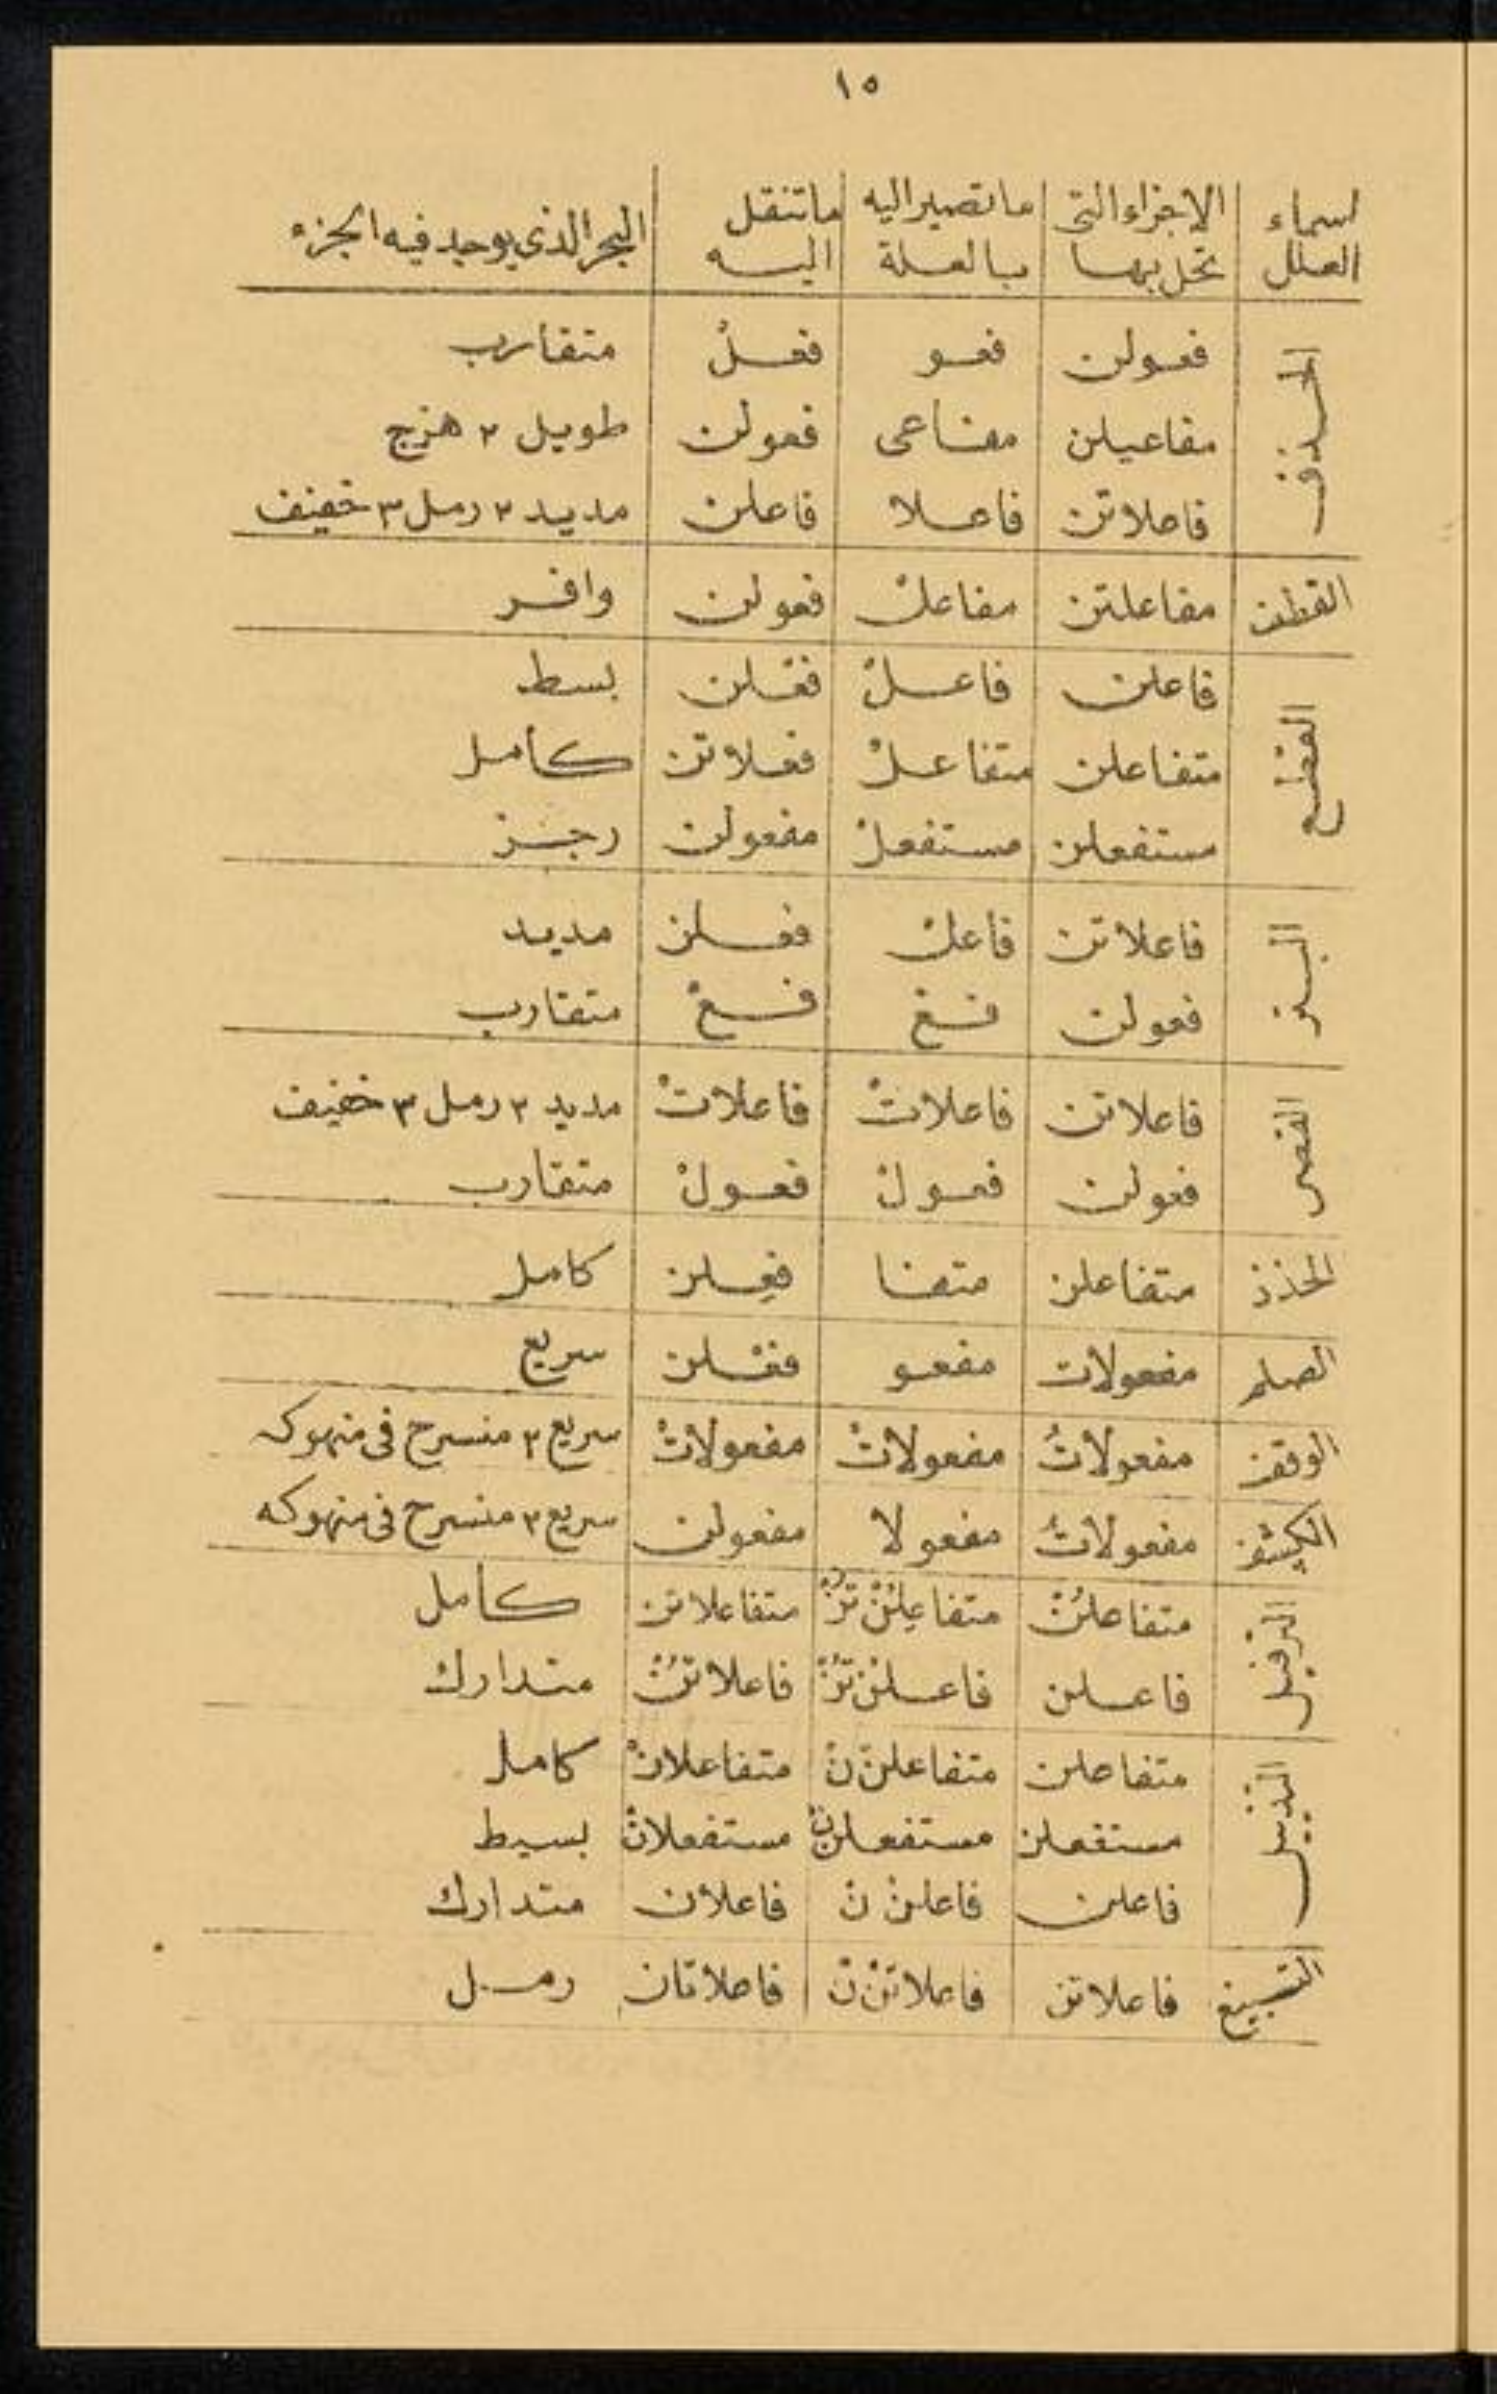 ١٥
اسماء العلل | الاجزاء التى تحل بها | ما تصير اليه بالعلة | ما تنقل اليه | البحر الذى يوجد فيه الجزء
الحذف | فعولن | فعو | فعلْ | متقارب
مفاعيلن | مفاعى | فعولن | طويل ٢ هزج
فاعلاتن | فاعلا | فاعلن | مديد ٢ رمل ٣ خفيف
القطف | مفاعلتن | مفاعلْ | فعولن | وافر
القطع | فاعلن | فاعلْ | فعْلن | بسط
متفاعلن | متفاعلْ | فعلاتن | كامل
مستفعلن | مستفعلْ | مفعولن | رجز
البتر | فاعلاتن | فاعلْ | فعلن | مديد
فعولن | فع | فعْ | متقارب
القصر | فاعلاتن | فاعلاتْ | فاعلاتْ | مديد ٢ رمل ٣ خفيف
فعولن | فعولْ | فعولْ | متقارب
الحذذ | متفاعلن | متفا | فعِلن | كامل
الصلم | مفعولات | مفعو | فعْلن | سريع
الوقف | مفعولاتُ | مفعولاتْ | مفعولاتْ | سريع ٢ منسرح فى منهوكه
الكشف | مفعولاتُ | مفعولا | مفعولن | سريع ٢ منسرح فى منهوكه
الترفيل | متفاعلُنْ | متفاعِلُنْ تن | متفاعلاتن | كامل
فاعلن | فاعلنْ تُنْ | فاعلاتُنْ | متدارك
التذييل | متفاعلن | متفاعلنْ نْ | متفاعلانْ | كامل
مستفعلن | مستفعلن نْ | مستفعلانْ | بسيط
فاعلن | فاعلنْ نْ | فاعلان | متدارك
التسبيغ | فاعلاتن | فاعلاتنْ نْ | فاعلاتان | رمل